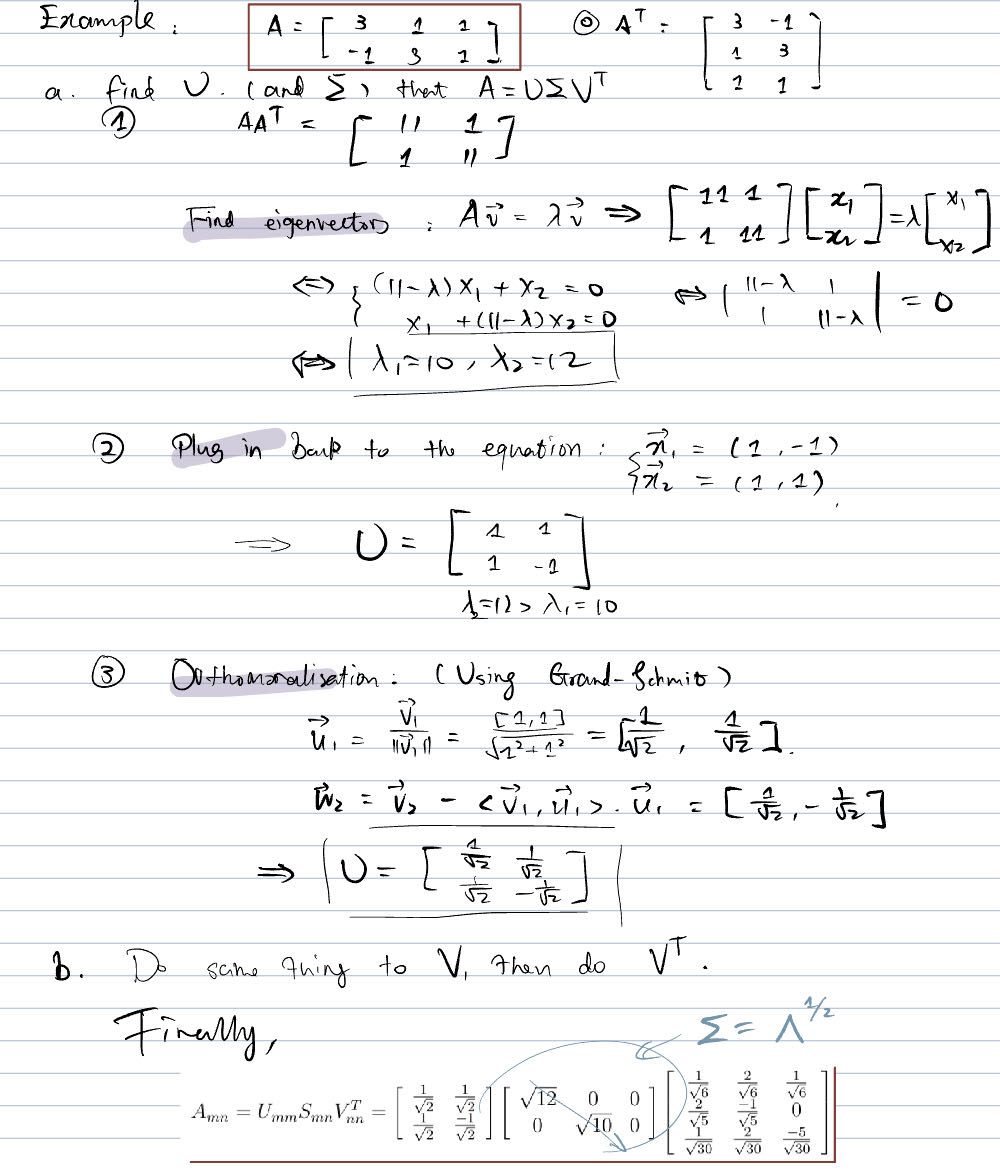 Example :
A = [ 3 1 1
-1 3 1 ]
⊚ Aᵀ : [ 3 -1
1 3
1 1 ]
a. find U. (and Σ) that A = UΣVᵀ
① AAᵀ = [ 11 1
1 11 ]
Find eigenvectors : Av⃗ = λv⃗ ⇒ [ 11 1
1 11 ] [ x₁
x₂ ] = λ [ x₁
x₂ ]
⇔ { (11-λ)x₁ + x₂ = 0
x₁ + (11-λ)x₂ = 0
⇔ | 11-λ 1
1 11-λ | = 0
⇔ | λ₁=10, λ₂=12
② Plug in Back to the equation : { x⃗₁ = (1, -1)
x⃗₂ = (1, 1).
⇒ U = [ 1 1
1 -1 ]
λ₂=12 > λ₁=10
③ Orthomoralisation : (Using Grand-Schmit)
u⃗₁ = v⃗₁/||v⃗₁|| = [1,1]/√1²+1² = [1/√2, 1/√2].
w⃗₂ = v⃗₂ - <v⃗₁, u⃗₁>. u⃗₁ = [1/√2, -1/√2]
⇒ | U = [ 1/√2 1/√2
1/√2 -1/√2 ] |
b. Do same thing to V, then do Vᵀ.
Finally,
Σ = Λ^1/2
A_mn = U_mm S_mn V_nn^T = [ 1/√2 1/√2
1/√2 -1/√2 ] [ √12 0 0
0 √10 0 ] [ 1/√6 2/√6 1/√6
2/√5 -1/√5 0
1/√30 2/√30 -5/√30 ]